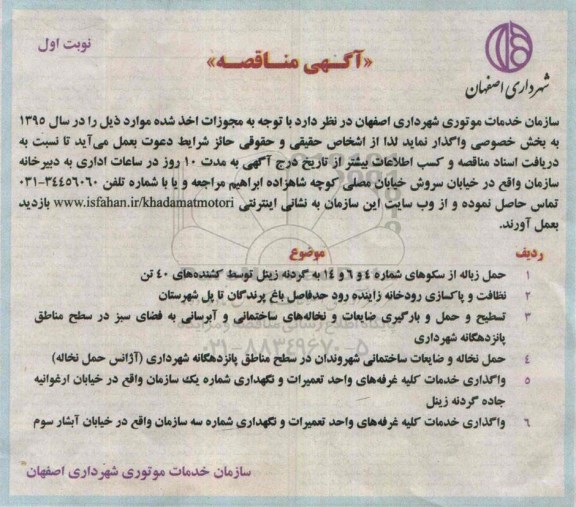 نوبت اول
«آگهی مناقصه»
شهرداری اصفهان
سازمان خدمات موتوری شهرداری اصفهان در نظر دارد با توجه به مجوزات اخذ شده موارد ذیل را در سال ۱۳۹۵
به بخش خصوصی واگذار نماید لذا از اشخاص حقیقی و حقوقی حائز شرایط دعوت بعمل می‌آید تا نسبت به
دریافت اسناد مناقصه و کسب اطلاعات بیشتر از تاریخ درج آگهی به مدت ۱۰ روز در ساعات اداری به دبیرخانه
سازمان واقع در خیابان سروش خیابان مصلی کوچه شاهزاده ابراهیم مراجعه و یا با شماره تلفن ۳۴۴۵۶۰۶۰-۰۳۱
تماس حاصل نموده و از وب سایت این سازمان به نشانی اینترنتی www.isfahan.ir/khadamatmotori بازدید
بعمل آورند.
ردیف موضوع
۱ حمل زباله از سکوهای شماره ۴ و ۶ و ۱۴ به گردنه زینل توسط کشنده‌های ۴۰ تن
۲ نظافت و پاکسازی رودخانه زاینده رود حدفاصل باغ پرندگان تا پل شهرستان
۳ تسطیح و حمل و بارگیری ضایعات و نخاله‌های ساختمانی و آبرسانی به فضای سبز در سطح مناطق
پانزدهگانه شهرداری
۴ حمل نخاله و ضایعات ساختمانی شهروندان در سطح مناطق پانزدهگانه شهرداری (آژانس حمل نخاله)
۵ واگذاری خدمات کلیه غرفه‌های واحد تعمیرات و نگهداری شماره یک سازمان واقع در خیابان ارغوانیه
جاده گردنه زینل
۶ واگذاری خدمات کلیه غرفه‌های واحد تعمیرات و نگهداری شماره سه سازمان واقع در خیابان آبشار سوم
پایگاه اطلاع رسانی مناقصه و مزایده
۰۲۱-۸۸۳۴۹۶۷۰-۵
سازمان خدمات موتوری شهرداری اصفهان